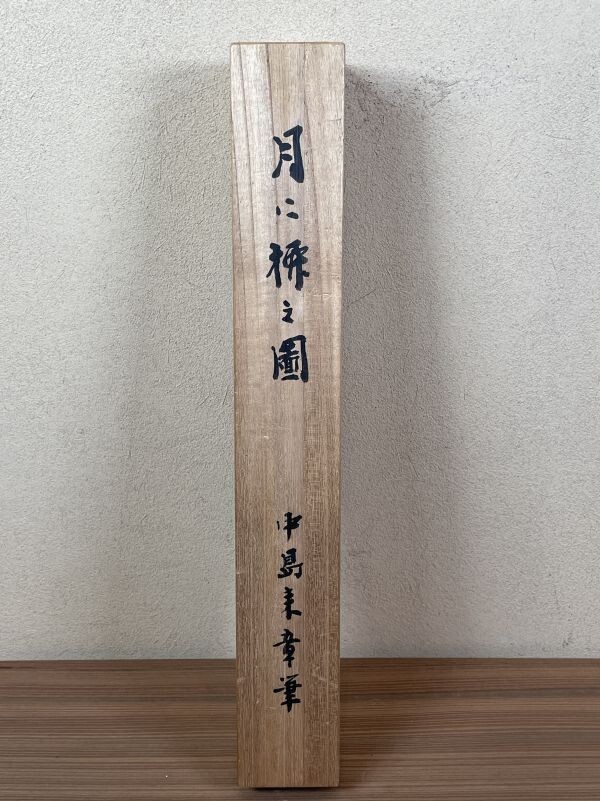 月に柳之圖
中島来章筆